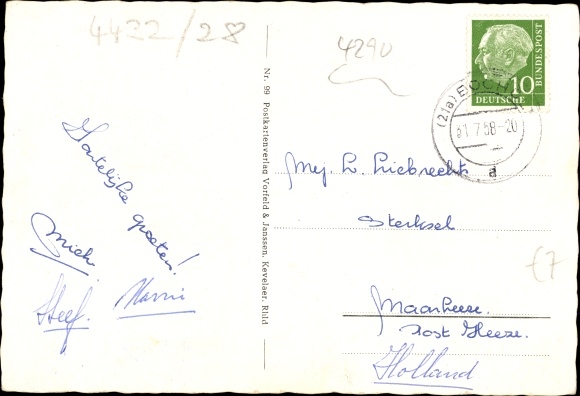 4422/28
4290
BUNDESPOST
10
DEUTSCHE
(21a) BOCH
31.7.58-20
a
Nr. 99 Postkartenverlag Vorfeld & Janssen, Kevelaer, Rhld
Hartelijke groeten!
Mich
Steef.
Mej. L. Liebrecht
Sterksel
Maarheeze.
Post Heeze.
Holland
£7